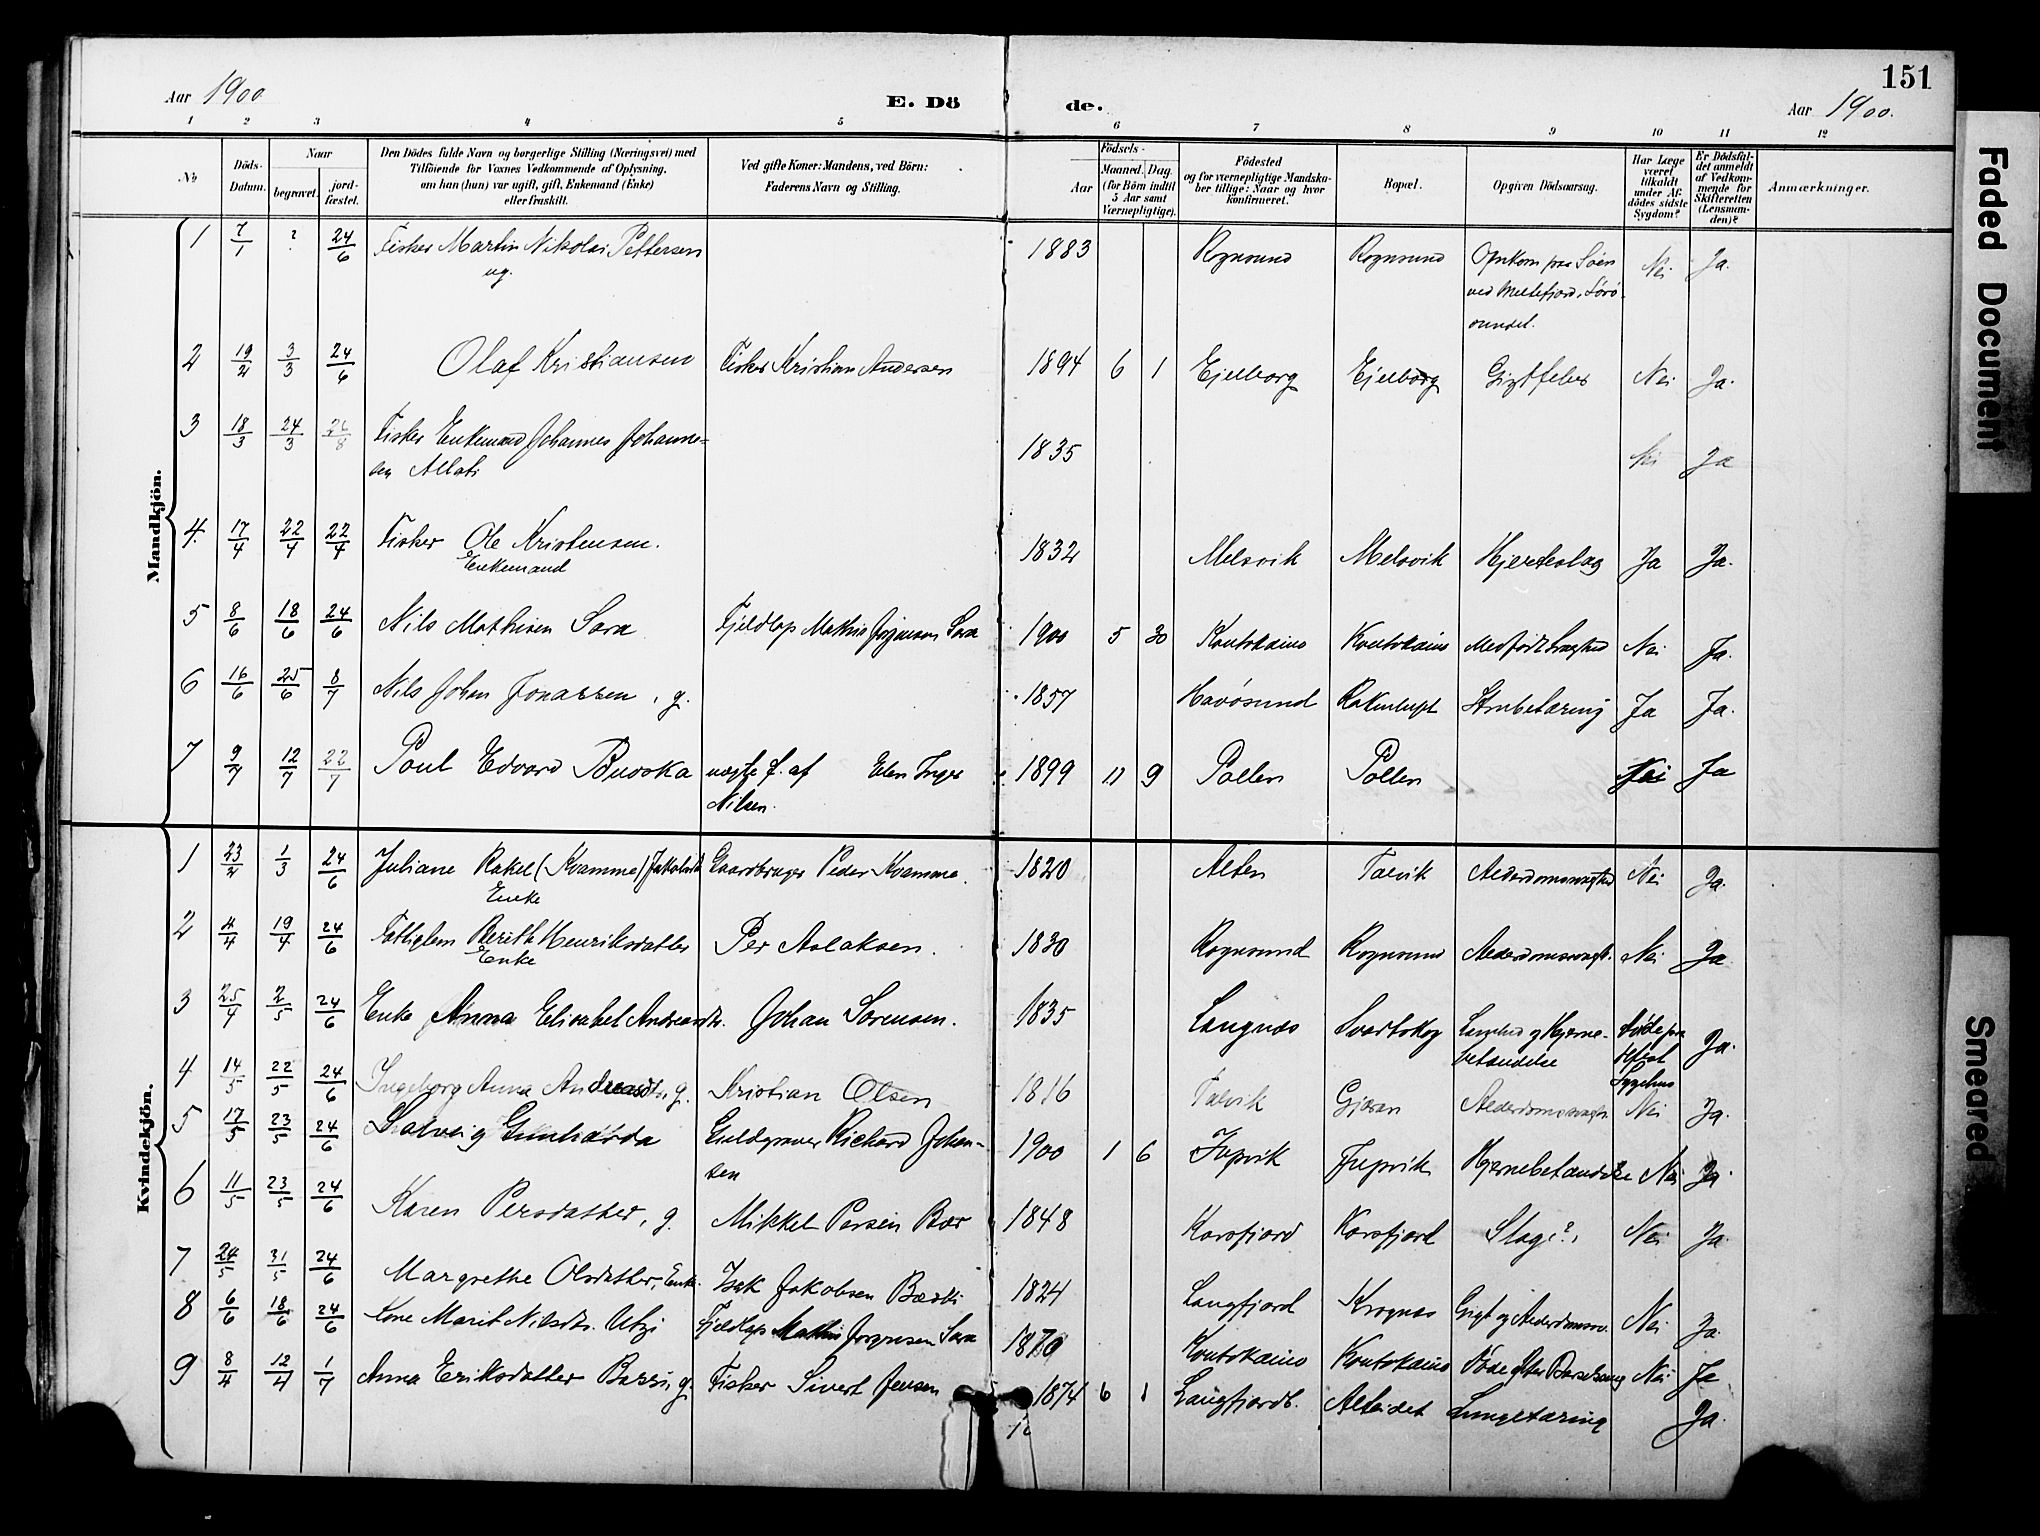 151
Aar 1900
E. Dö
de.
Aar 1900.
1 2 3 4 5 6 7 8 9 10 11 12
No
Döds-Datum.
Naar
begravet.
jord-fæstet.
Den Dödes fulde Navn og borgerlige Stilling (Næringsvei) med
Tilföiende for Voxnes Vedkommende af Oplysning,
om han (hun) var ugift, gift, Enkemand (Enke)
eller fraskilt.
Ved gifte Koner: Mandens, ved Börn:
Faderens Navn og Stilling.
Födsels-
Aar
Maaned. Dag.
(for Börn indtil
5 Aar samt
Værnepligtige).
Födested
og for værnepligtige Mandska-
ber tillige: Naar og hvor
konfirmeret.
Bopæl.
Opgiven Dödsaarsag.
Har Læge
været
tilkaldt
under Af-
dödes sidste
Sygdom?
Er Dödsfal-
det anmeldt
af Vedkom-
mende for
Skifteretten
(Lensman-
den)?
Anmærkninger.
Mandkjön.
1 7/1 ? 24/6 Fisker Martin Nikolai Pettersen 1883 Rognsund Rognsund Opkom paa Søen Nei Ja.
ug. ved Meltefjord, Sørø-
sundet.
2 19/2 3/3 24/6 Olaf Kristiansen Fisker Kristian Andersen 1894 6 1 Ejelborg Ejelborg Gigtfeber Nei Ja.
3 18/3 24/3 26/8 Fisker Enkemand Johannes Johanne- 1835 Nei Ja
sen
4. 17/4 22/4 22/4 Fisker Ole Kristensen. 1832 Melsvik Melsvik Hjerteslag Ja Ja.
Enkemand
5 8/6 18/6 24/6 Nils Mathisen Sara Fjeldlap Mathis Jørgensen Sara 1900 5 30 Koutokeino Koutokeino Medfødt Svaghed Nei Ja.
6 16/6 25/6 8/7 Nils Johan Jonassen, g. 1857 Havøsund Strubetæring Ja Ja.
7 9/7 12/7 22/7 Poul Edvard Buvoka uægte f. af Elen Inger 1899 11 9 Pollen Pollen Nei Ja
Nilsen.
Kvindekjön.
1 23/2 1/3 24/6 Juliane Rakel (Kvamme) Gaardbruger Peder Kvamme. 1820 Alten Talvik Alderdomssvaghed Nei Ja.
Enke
2 4/4 19/4 24/6 Fattiglem Berith Henriksdatter Per Aslaksen. 1830 Rognsund Rognsund Alderdomssvagh. Nei Ja
Enke
3 25/4 2/5 24/6 Enke Anna Elisabet Andreasdtr. Johan Sørensen. 1835 Langnæs Svartskog og Hjerne- Ja.
betændelse Sygehus
4 14/5 22/5 24/6 Ingeborg Anna Andreasdtr, g. Kristian Olsen 1816 Talvik Alderdomssvagh. Nei Ja.
5 17/5 23/5 24/6 Solveig Gunharda Guldgraver Richard Johan- 1900 1 6 Jupvik Jupvik Hjernebetændelse Nei Ja.
sen
6 11/5 23/5 24/6 Karen Persdatter, g. Mikkel Persen Bær 1848 Korsfjord Korsfjord Slag?. Nei Ja.
7 24/5 31/5 24/6 Margrethe Olsdatter, Enke. Isak Jakobsen 1824 Langfjord Krognæs Gigt og Alderdomssv. Nei Ja.
8 6/6 18/6 24/6 Kone Marit Nilsdtr. Utzi Fjeldlap Mathis Jørgensen Sara 1870 Koutokeino Koutokeino Døde efter Barselseng Nei Ja
9 8/4 12/4 1/7 Anna Eriksdatter g. Fisker Sivert Jensen 1874 6 1 Langfjordb. Alteidet Lungetæring Ja.
Faded Document
Smeared